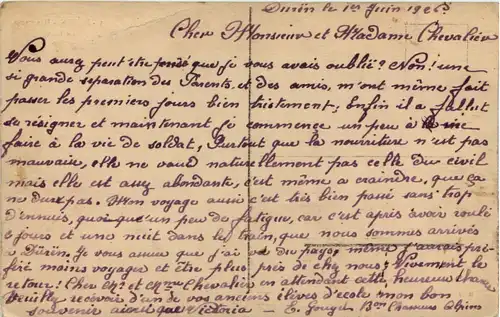 Durën le 1er Juin 192
Cher Monsieur et Madame Chevalier
Vous avez peut être pensé que je vous avais oublié? Non! une
si grande séparation des Parents, et des amis, m'ont même fait
passer les premiers jours bien tristement; Enfin il a fallut
se résigner et maintenant je commence un peu à me
faire à la vie de soldat, Surtout que la nourriture n'est pas
mauvaise, elle ne vaud naturellement pas celle du civil
mais elle est assez abondante, c'est même a craindre, que ça
ne dure pas. Mon voyage aussi c'est très bien passé sans trop
d'ennuis, quoique un peu de fatigue, car c'est après avoir roulé
jours et une nuit dans les train, que nous sommes arrivés
à Dürën. Je vous avoue que j'ai vu du pays, même j'aurais pré-
féré moins voyager et être plus près de chez nous; Vivement le
retour! Cher Mr. et Mme Chevalier en attendant cette, heureux
Veuillez recevoir d'un de vos anciens élèves d'école mon bon
souvenir ainsi que Victoria —